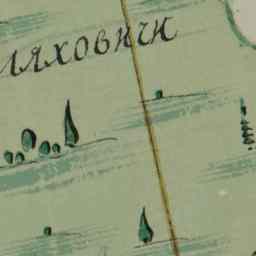 ляховичи